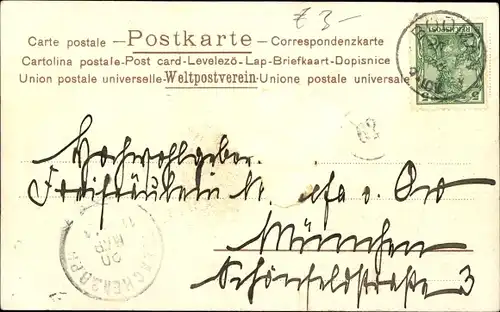 £ 3-
Carte postale – Postkarte – Correspondenzkarte
Cartolina postale - Post card - Levelező - Lap - Briefkaart - Dopisnice
Union postale universelle - Weltpostverein - Unione postale universale
REICHSPOST
62
Hochwohlgeboren
Freifräulein v. Ow
München
Schönfeldstraße 3
20